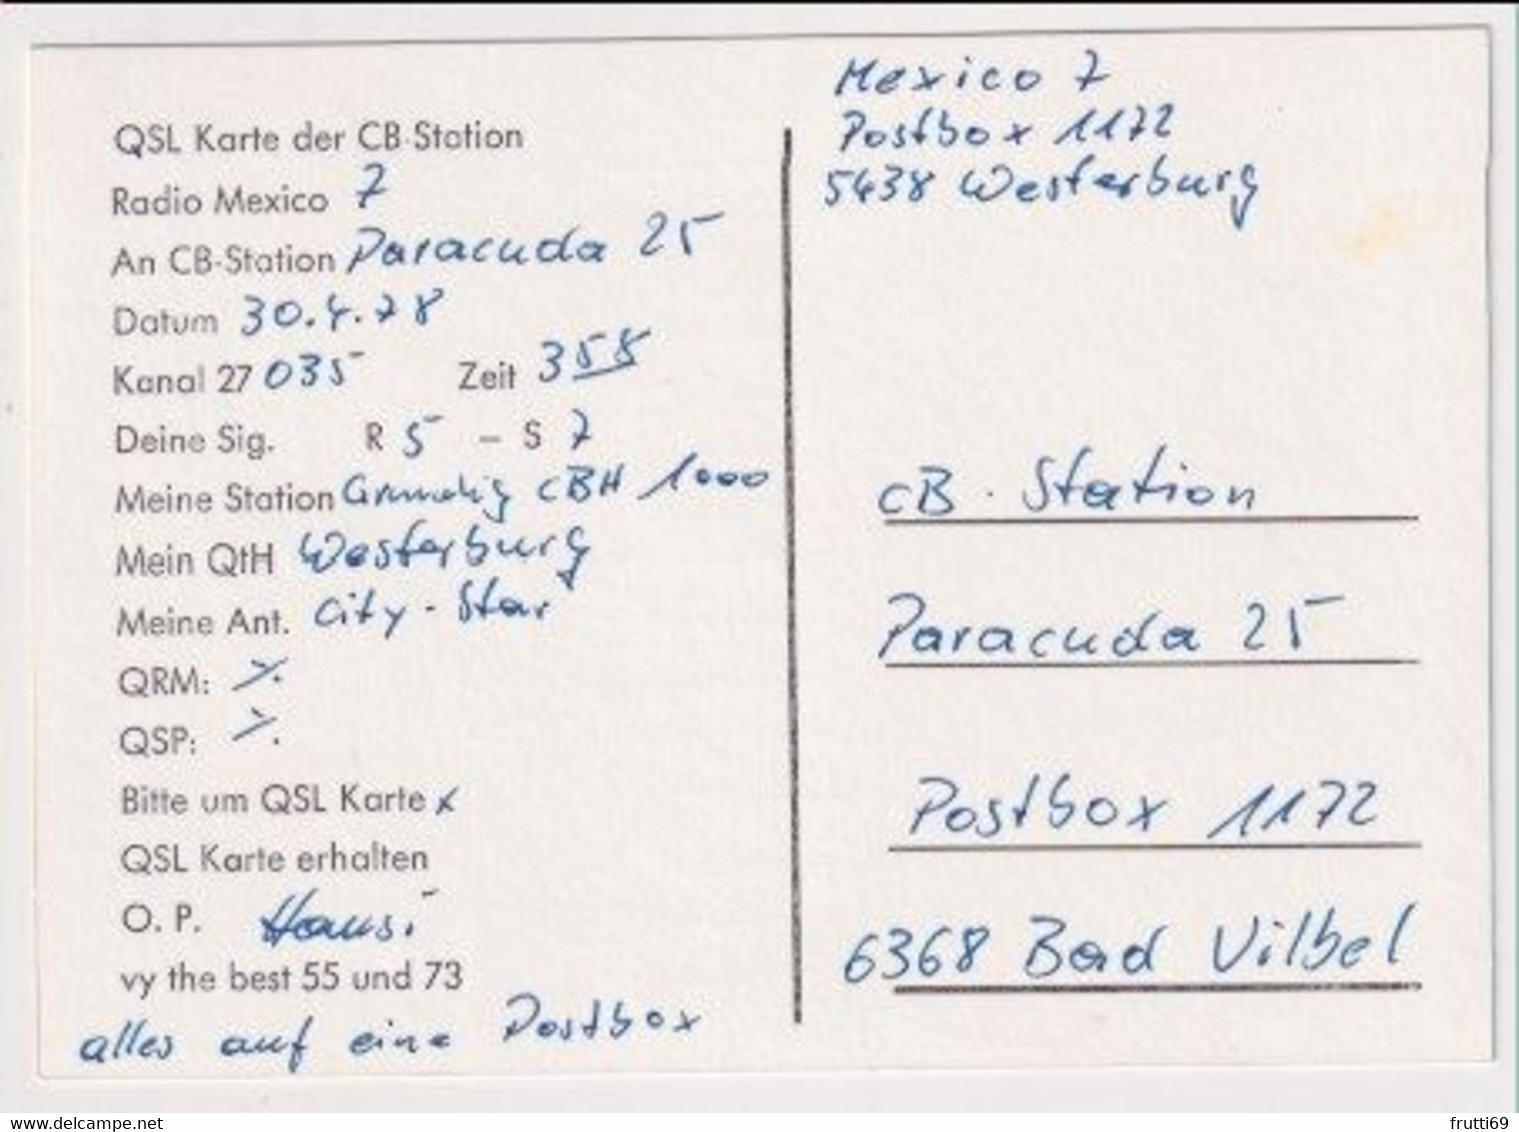 QSL Karte der CB-Station
Radio Mexico 7
An CB-Station Paracuda 25
Datum 30.4.78
Kanal 27 035 Zeit 358
Deine Sig. R 5 - S 7
Meine Station Grundig CBH 1000
Mein QtH Westerburg
Meine Ant. City-Star
QRM: ⁒
QSP: ⁒
Bitte um QSL Karte x
QSL Karte erhalten
O. P. Hansi
vy the best 55 und 73
alles auf eine Postbox
Mexico 7
Postbox 1172
5438 Westerburg
CB. Station
Paracuda 25
Postbox 1172
6368 Bad Vilbel
www.delcampe.net
frutti69